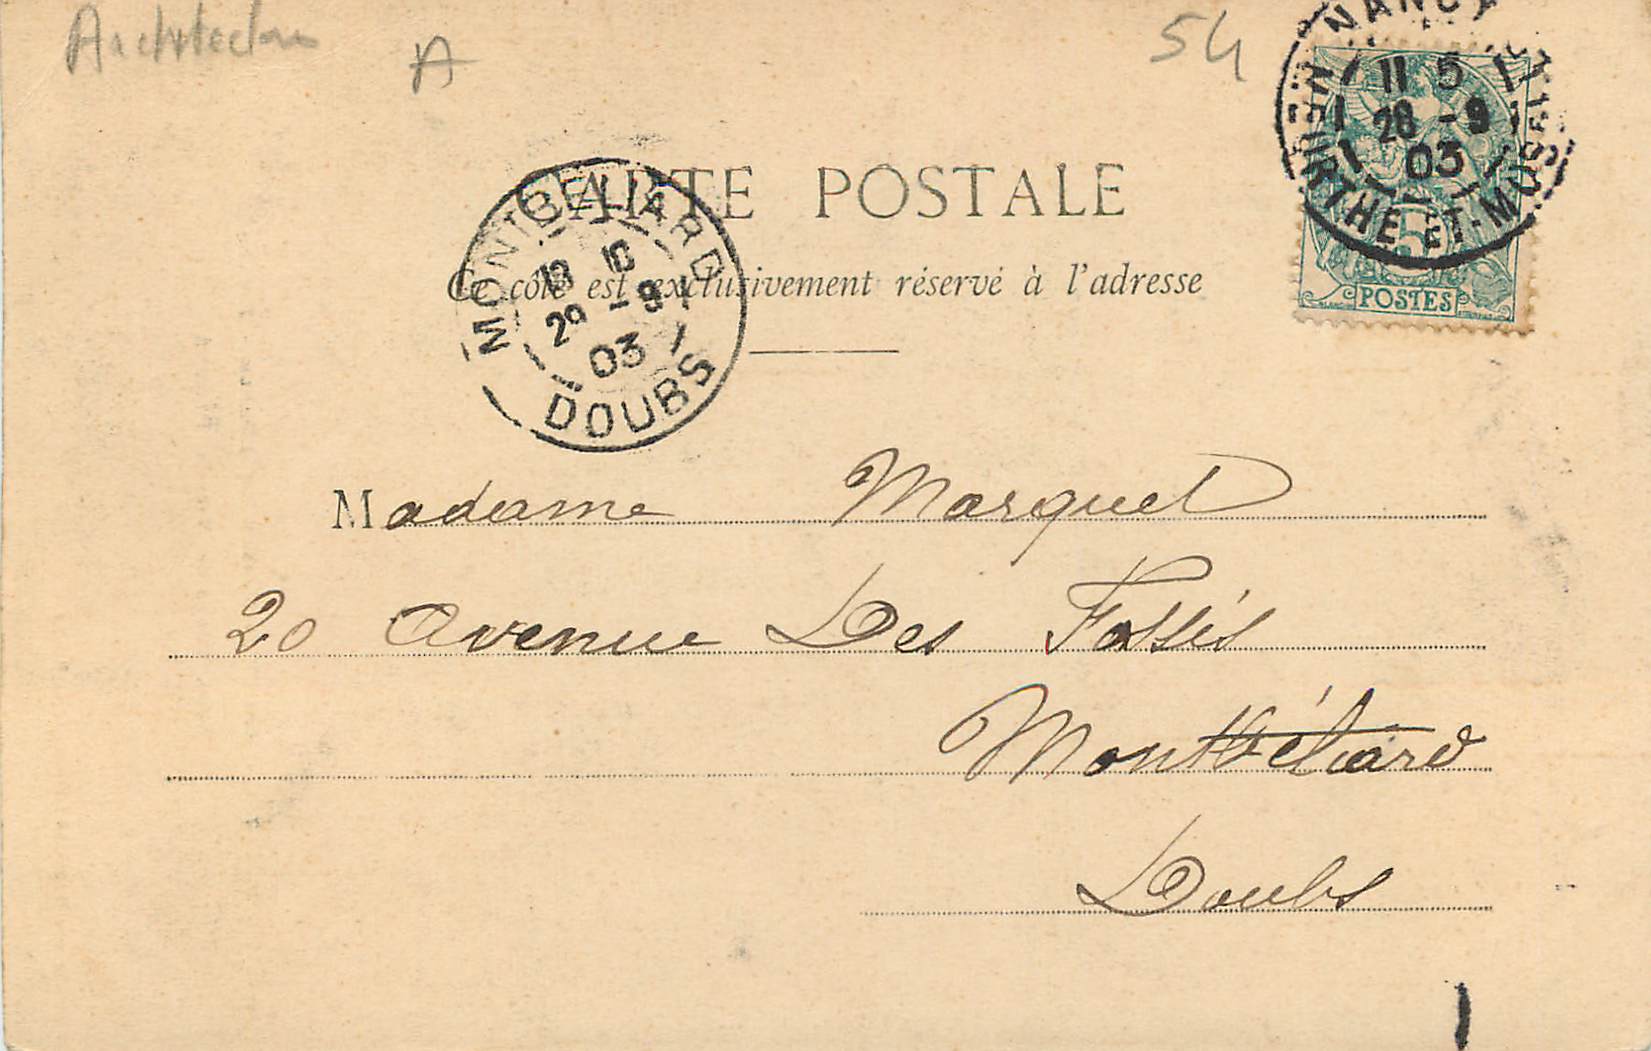 Architecture
A
54
NANCY
11 5
28 -9
03
MEURTHE-ET-MOSELLE
5
POSTES
CARTE POSTALE
Ce côté est exclusivement réservé à l'adresse
MONTBELIARD
10
29 -9
03
DOUBS
Madame Marquet
20 Avenue Des Fossés
Montbéliard
Doubs